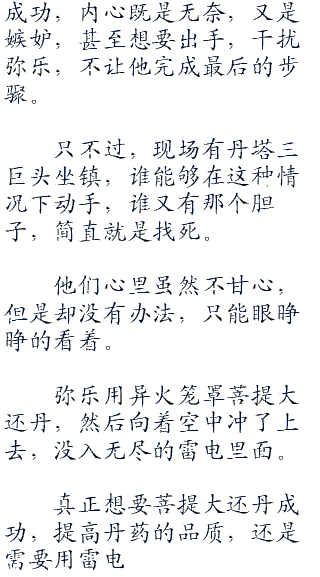 成功，内心既是无奈，又是
嫉妒，甚至想要出手，干扰
弥乐，不让他完成最后的步
骤。
　　只不过，现场有丹塔三
巨头坐镇，谁能够在这种情
况下动手，谁又有那个胆
子，简直就是找死。
　　他们心里虽然不甘心，
但是却没有办法，只能眼睁
睁的看着。
　　弥乐用异火笼罩菩提大
还丹，然后向着空中冲了上
去，没入无尽的雷电里面。
　　真正想要菩提大还丹成
功，提高丹药的品质，还是
需要用雷电